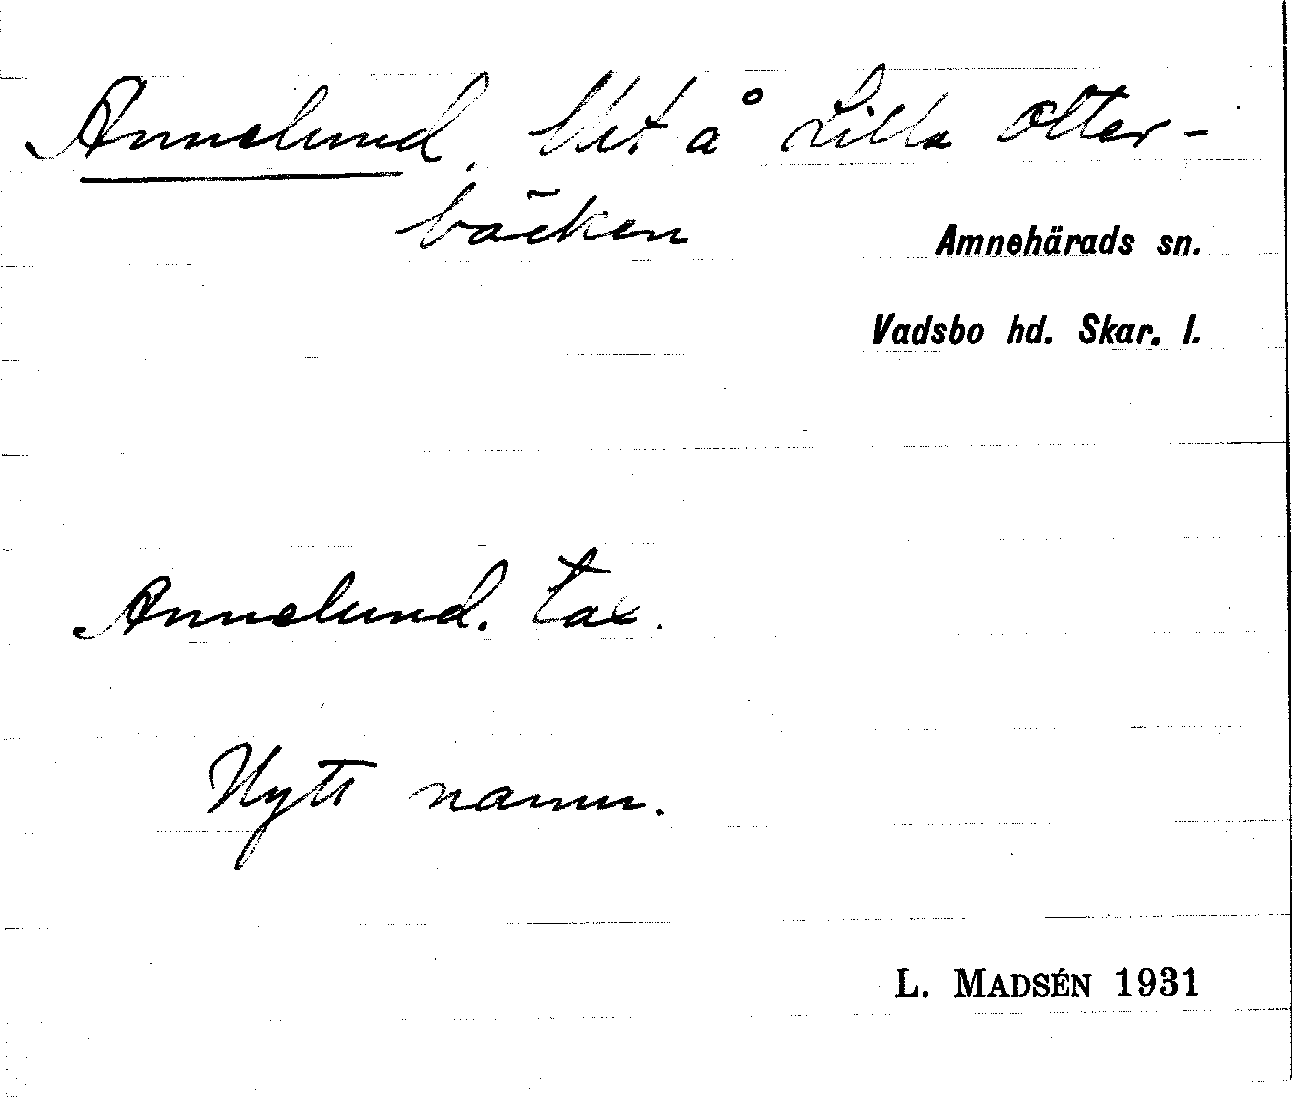 Annelund, lht å Lilla Otter-
bäcken
Amnehärads sn.
Vadsbo hd. Skar. l.
Annelund. tax.
Nytt namn.
L. MADSÉN 1931